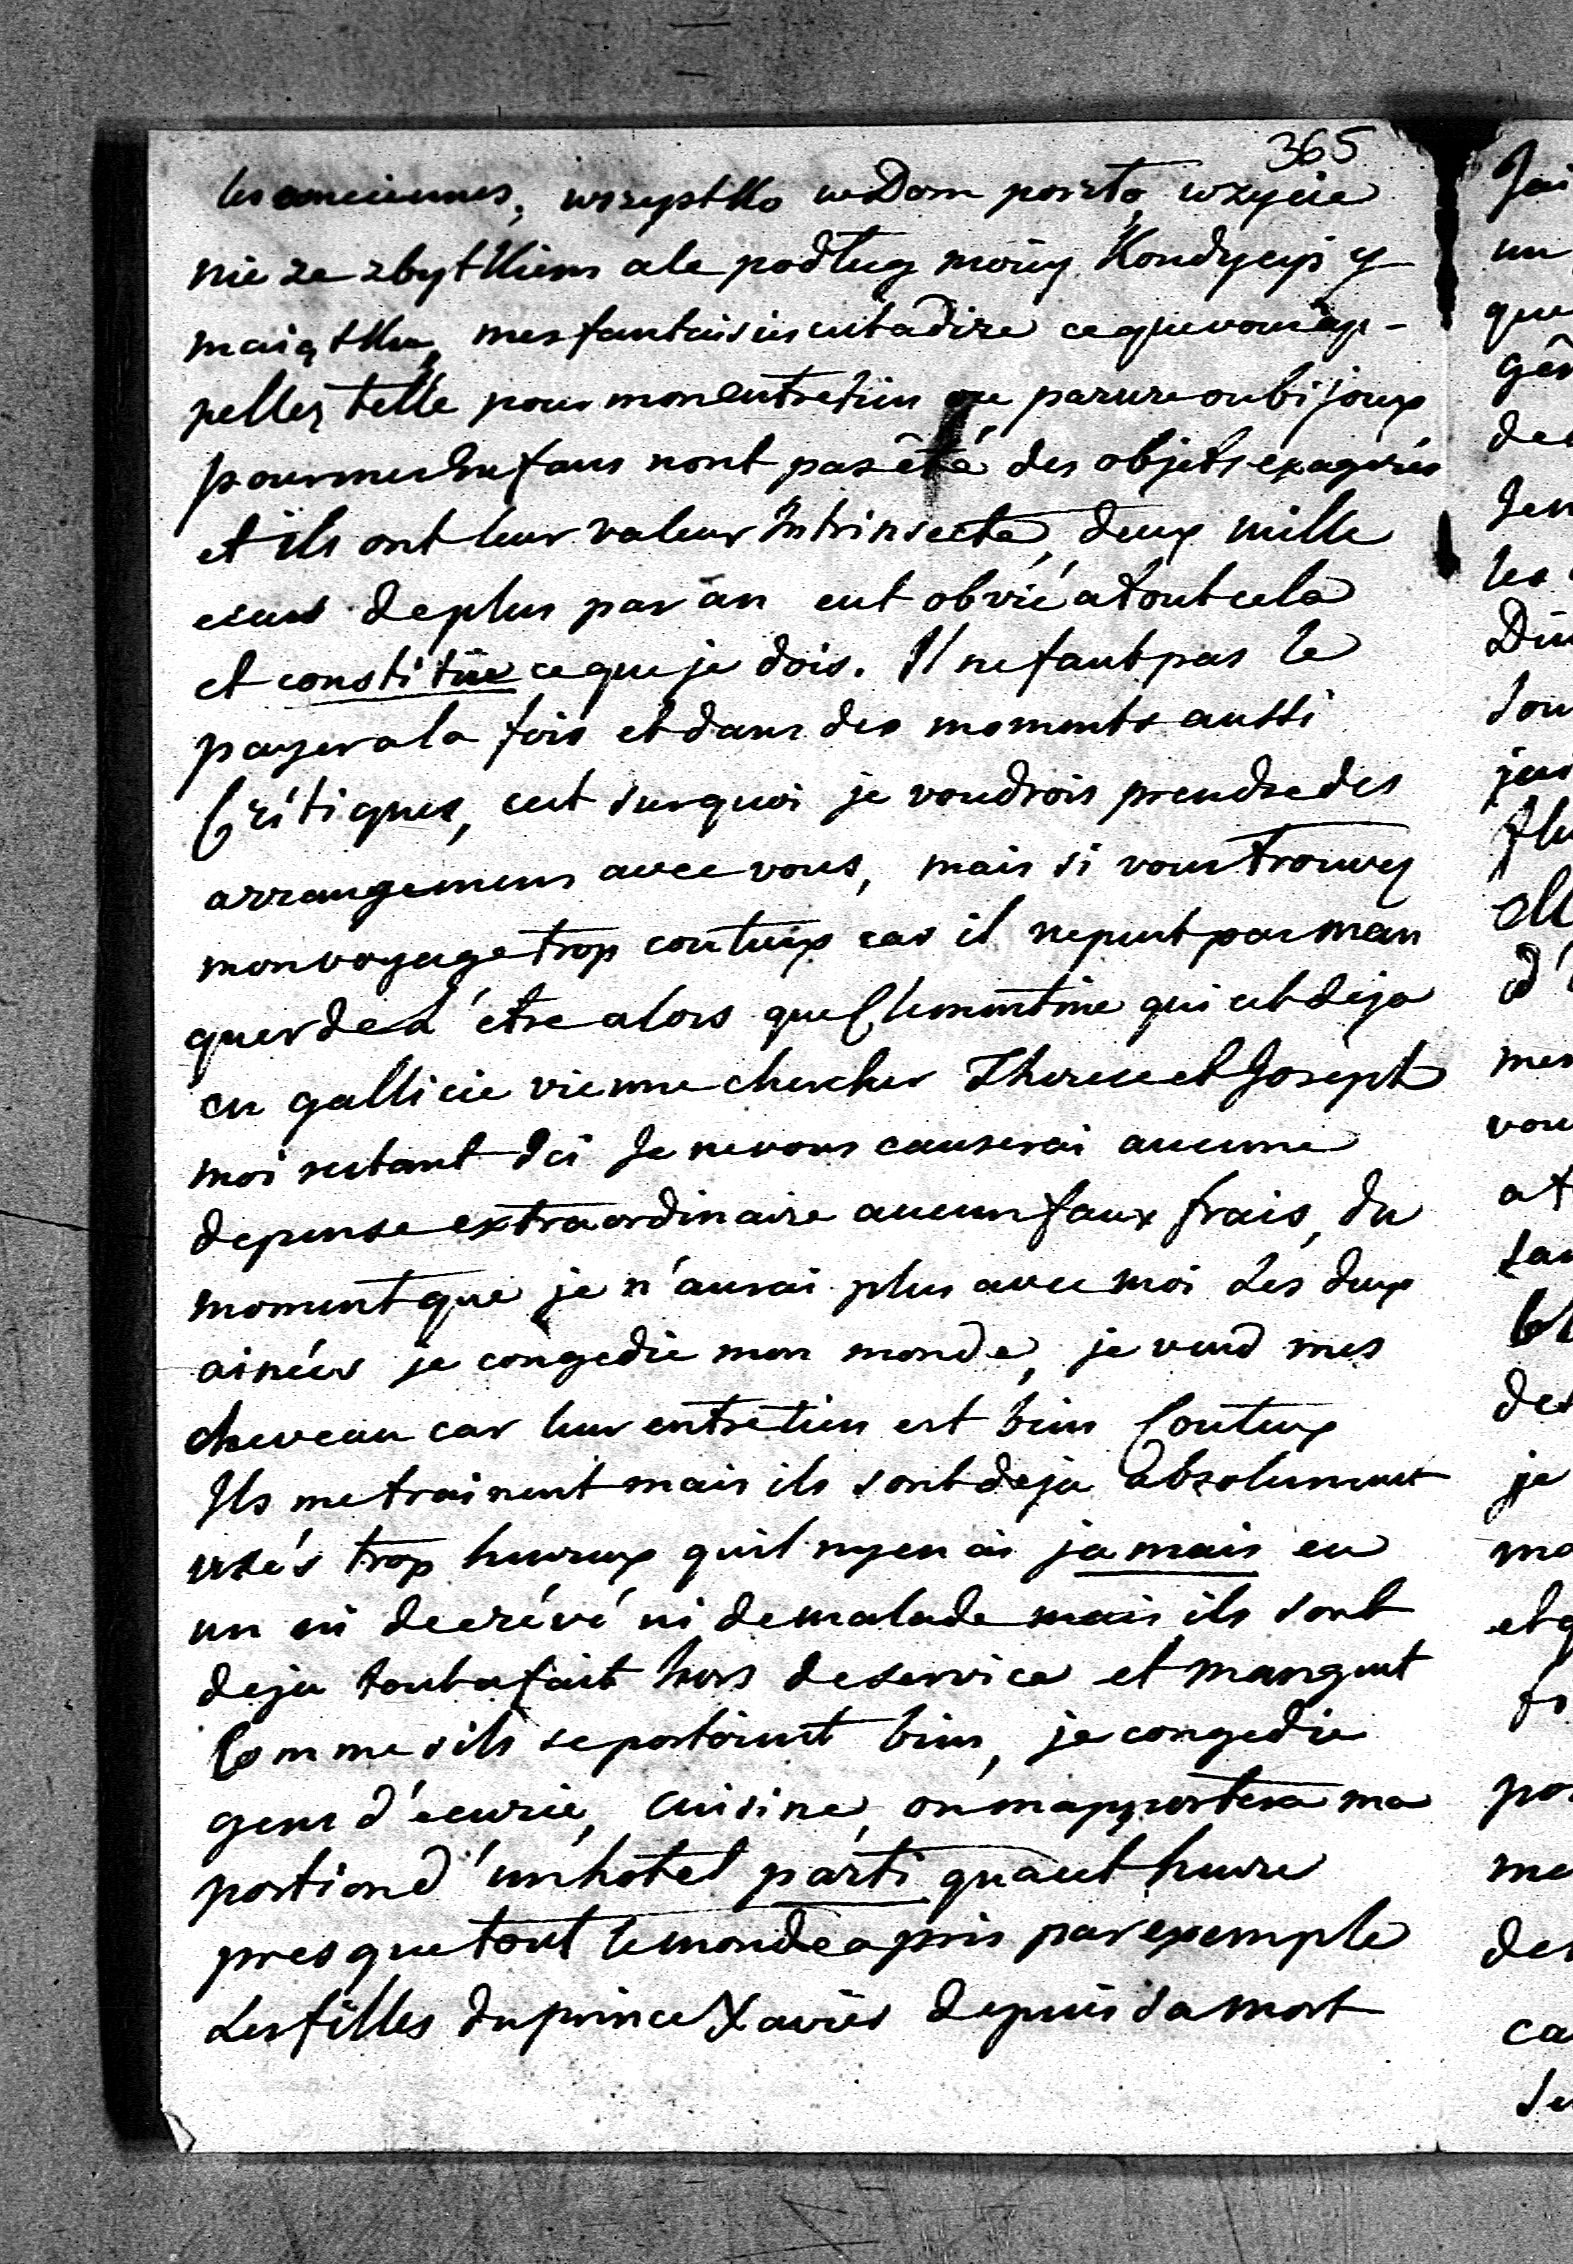 365
les anciennes, wszystko w Dom poszło, w zycie
nie ze zbytkiem ale podług moiey Kondycyi y
maiątku, mes fantaisies cest a dire ce que vous ap-
pellez telle pour mon entretien ou parure ou bijoux
pour mes Enfans nont pas êté des objets exagerés
et ils ont leur valeur Intrinsecte, deux mille
ecus de plus par ân eut obvié a tout cela
et constitüe ce que je dois. Il ne faut pas le
payer a la fois et dans des moments aussi
Critiques, cest sur quoi je voudrois prendre des
arrangemens avec vous, mais si vous trouvez
mon voyage trop couteux car il ne peut pas man
quer de L'être alors que Clementine qui est deja
en gallicie vienne chercher Therese et Joseph
moi restant Ici Je ne vous causerai aucune
depense extraordinaire aucun faux frais, du
moment que je n'aurai plus avec moi Les deux
ainées je congedie mon monde, je vend mes
cheveau car leur entretien est bien Couteux
Ils me trainent mais ils sont deja absolument
usés trop heureux quil nyen ai jamais eu
un ni de crévé ni de malade mais ils sont
deja tout a fait hors de service et mangent
Comme sils se portoient bien, je congedie
gens d'ecurie, cuisine, on m'apportera ma
portion d'un hotel parti qu'a cet heure
presque tout le monde a pris par exemple
Les filles du prince Xavier depuis sa mort